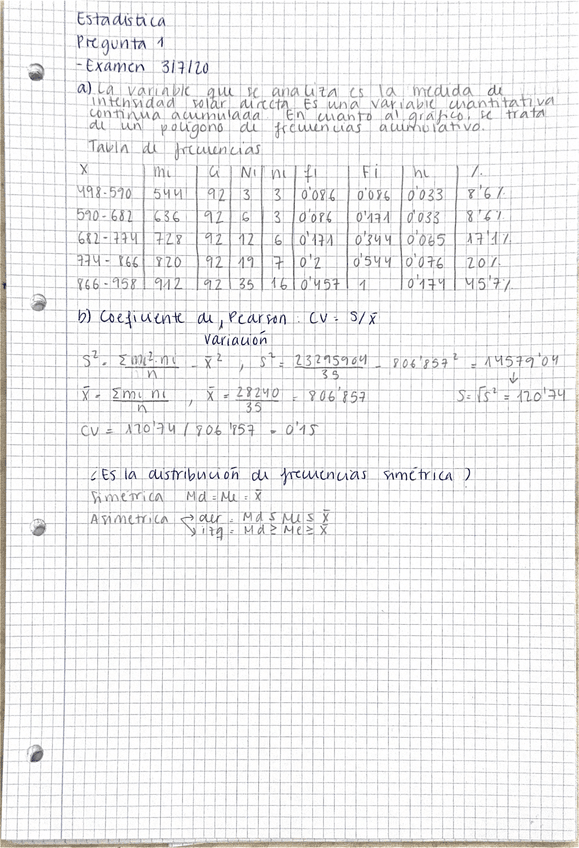 Estadística
Pregunta 1
- Examen 3/7/20
a) La variable que se analiza es la medida de
intensidad solar directa. Es una variable cuantitativa
continua acumulada. En cuanto al gráfico, se trata
de un polígono de frecuencias acumulativo.
Tabla de frecuencias
X mi ci Ni ni fi Fi hi %
498-590 544 92 3 3 0'086 0'086 0'033 8'6%
590-682 636 92 6 3 0'086 0'171 0'033 8'6%
682-774 728 92 12 6 0'171 0'344 0'065 17'1%
774-866 820 92 19 7 0'2 0'544 0'076 20%
866-958 912 92 35 16 0'457 1 0'174 45'7%
b) Coeficiente de Pearson: CV = S/x̄
variación
S² = Σmi²·ni/n - x̄², S² = 23295904/35 - 806'857² = 14579'04
x̄ = Σmi ni/n, x̄ = 28240/35 = 806'857 S = √S² = 120'74
CV = 120'74 / 806'857 = 0'15
¿Es la distribución de frecuencias simétrica?
Simétrica Md = Me = x̄
Asimétrica → der = Md ≤ Me ≤ x̄
↘ izq = Md ≥ Me ≥ x̄